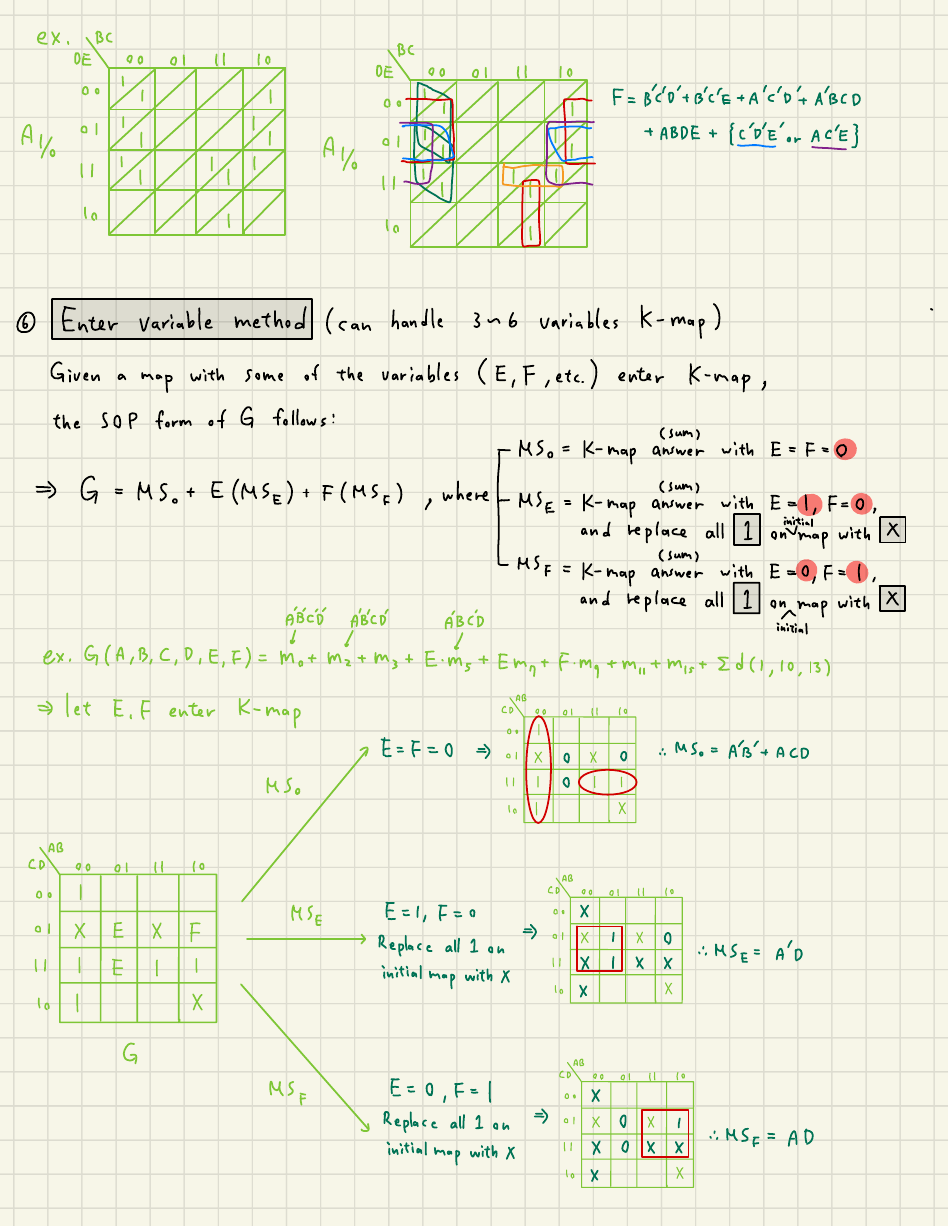 ex.
BC
DE 00 01 11 10
00 1 1
01 1 1
11 1 1 1 1
10 1 1
A 1/0
BC
DE 00 01 11 10
00
01
11
10
A 1/0
F = B'C'D' + B'C'E + A'C'D' + A'BCD
+ ABDE + {C'D'E' or AC'E}
⑥ Enter variable method (can handle 3~6 variables K-map)
Given a map with some of the variables (E, F, etc.) enter K-map,
the SOP form of G follows:
⇒ G = MS₀ + E(MS_E) + F(MS_F) , where
MS₀ = K-map answer (sum) with E = F = 0
MS_E = K-map answer (sum) with E=1, F=0,
and replace all 1 on initial map with X
MS_F = K-map answer (sum) with E=0, F=1,
and replace all 1 on initial map with X
A'B'C'D' A'B'CD' A'BC'D
ex. G(A,B,C,D,E,F) = m₀ + m₂ + m₃ + E·m₅ + Em₇ + F·m₉ + m₁₁ + m₁₅ + Σd(1,10,13)
⇒ let E,F enter K-map
MS₀
E=F=0 ⇒
AB
CD 00 01 11 10
00 1
01 X 0 X 0
11 1 0 1 1
10 1 X
∴ MS₀ = A'B' + ACD
AB
CD 00 01 11 10
00 1
01 X E X F
11 1 E 1 1
10 1 X
G
MS_E
E=1, F=0
Replace all 1 on
initial map with X
⇒
AB
CD 00 01 11 10
00 X
01 X 1 X 0
11 X 1 X X
10 X X
∴ MS_E = A'D
MS_F
E=0, F=1
Replace all 1 on
initial map with X
⇒
AB
CD 00 01 11 10
00 X
01 X 0 X 1
11 X 0 X X
10 X X
∴ MS_F = AD